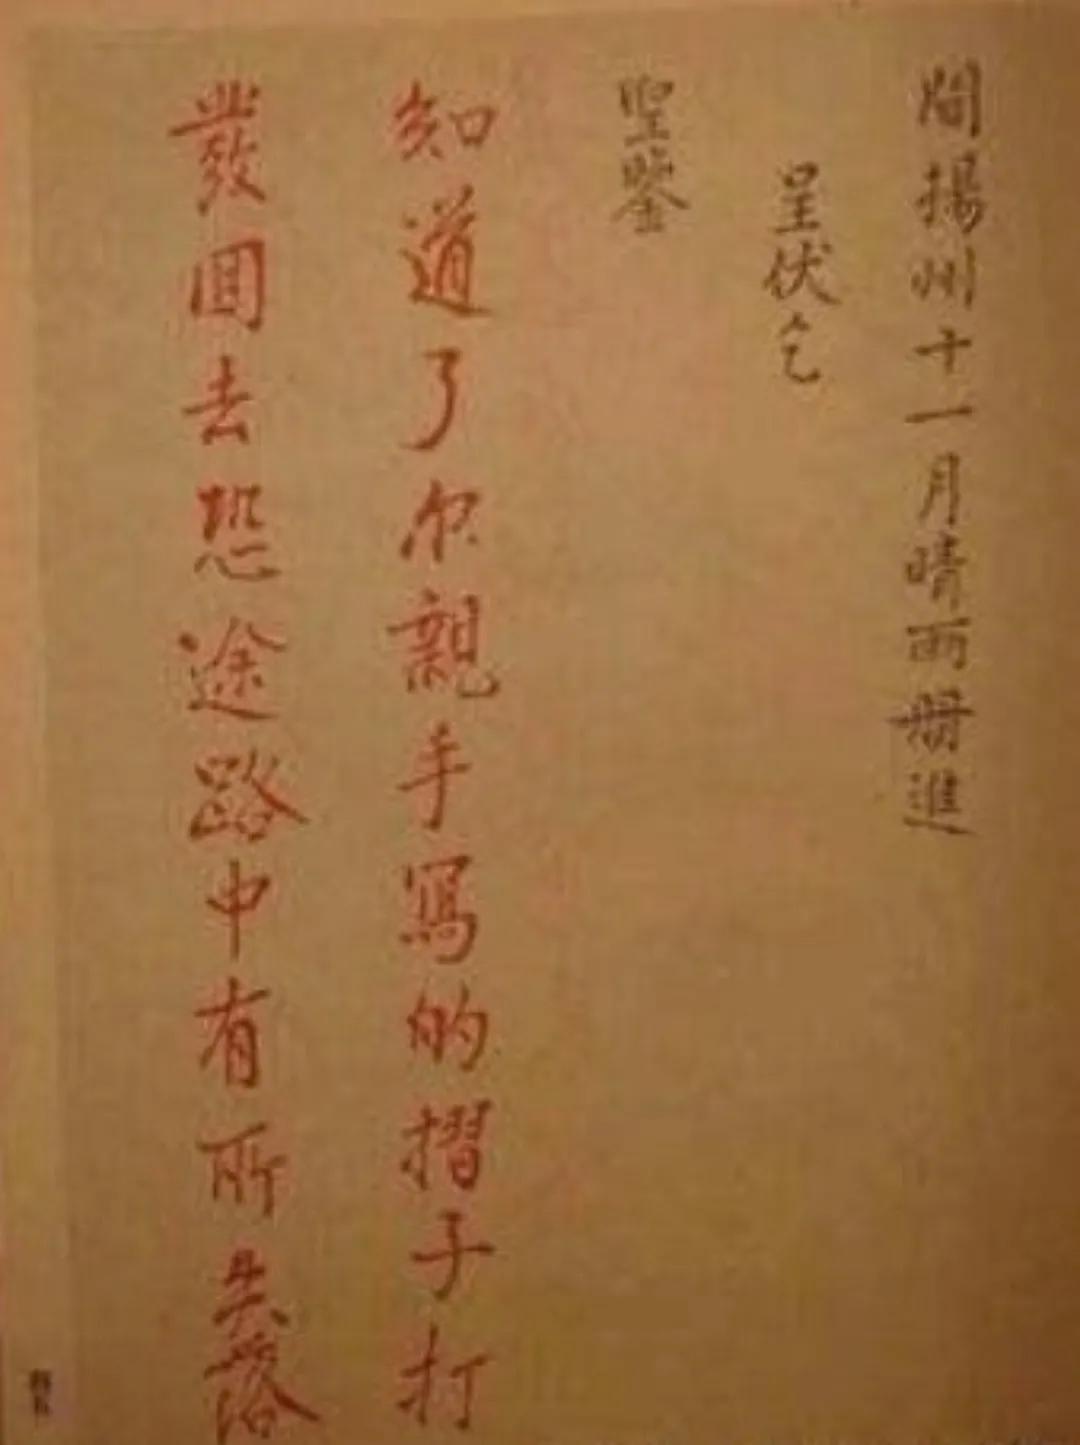 間揚州十一月晴雨冊進
呈伏乞
聖鑒
知道了尔親手寫的摺子打
發回去恐途路中有所失落